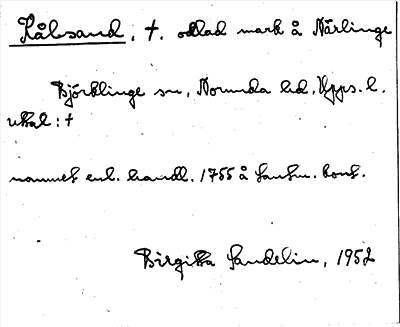 Kålsand, †. odlad mark å Närlinge
Björklinge sn, Norunda hd, Upps. l.
uttal: †
namnet enl. handl. 1755 å lantm. kont.
Birgitta Sandelin, 1952